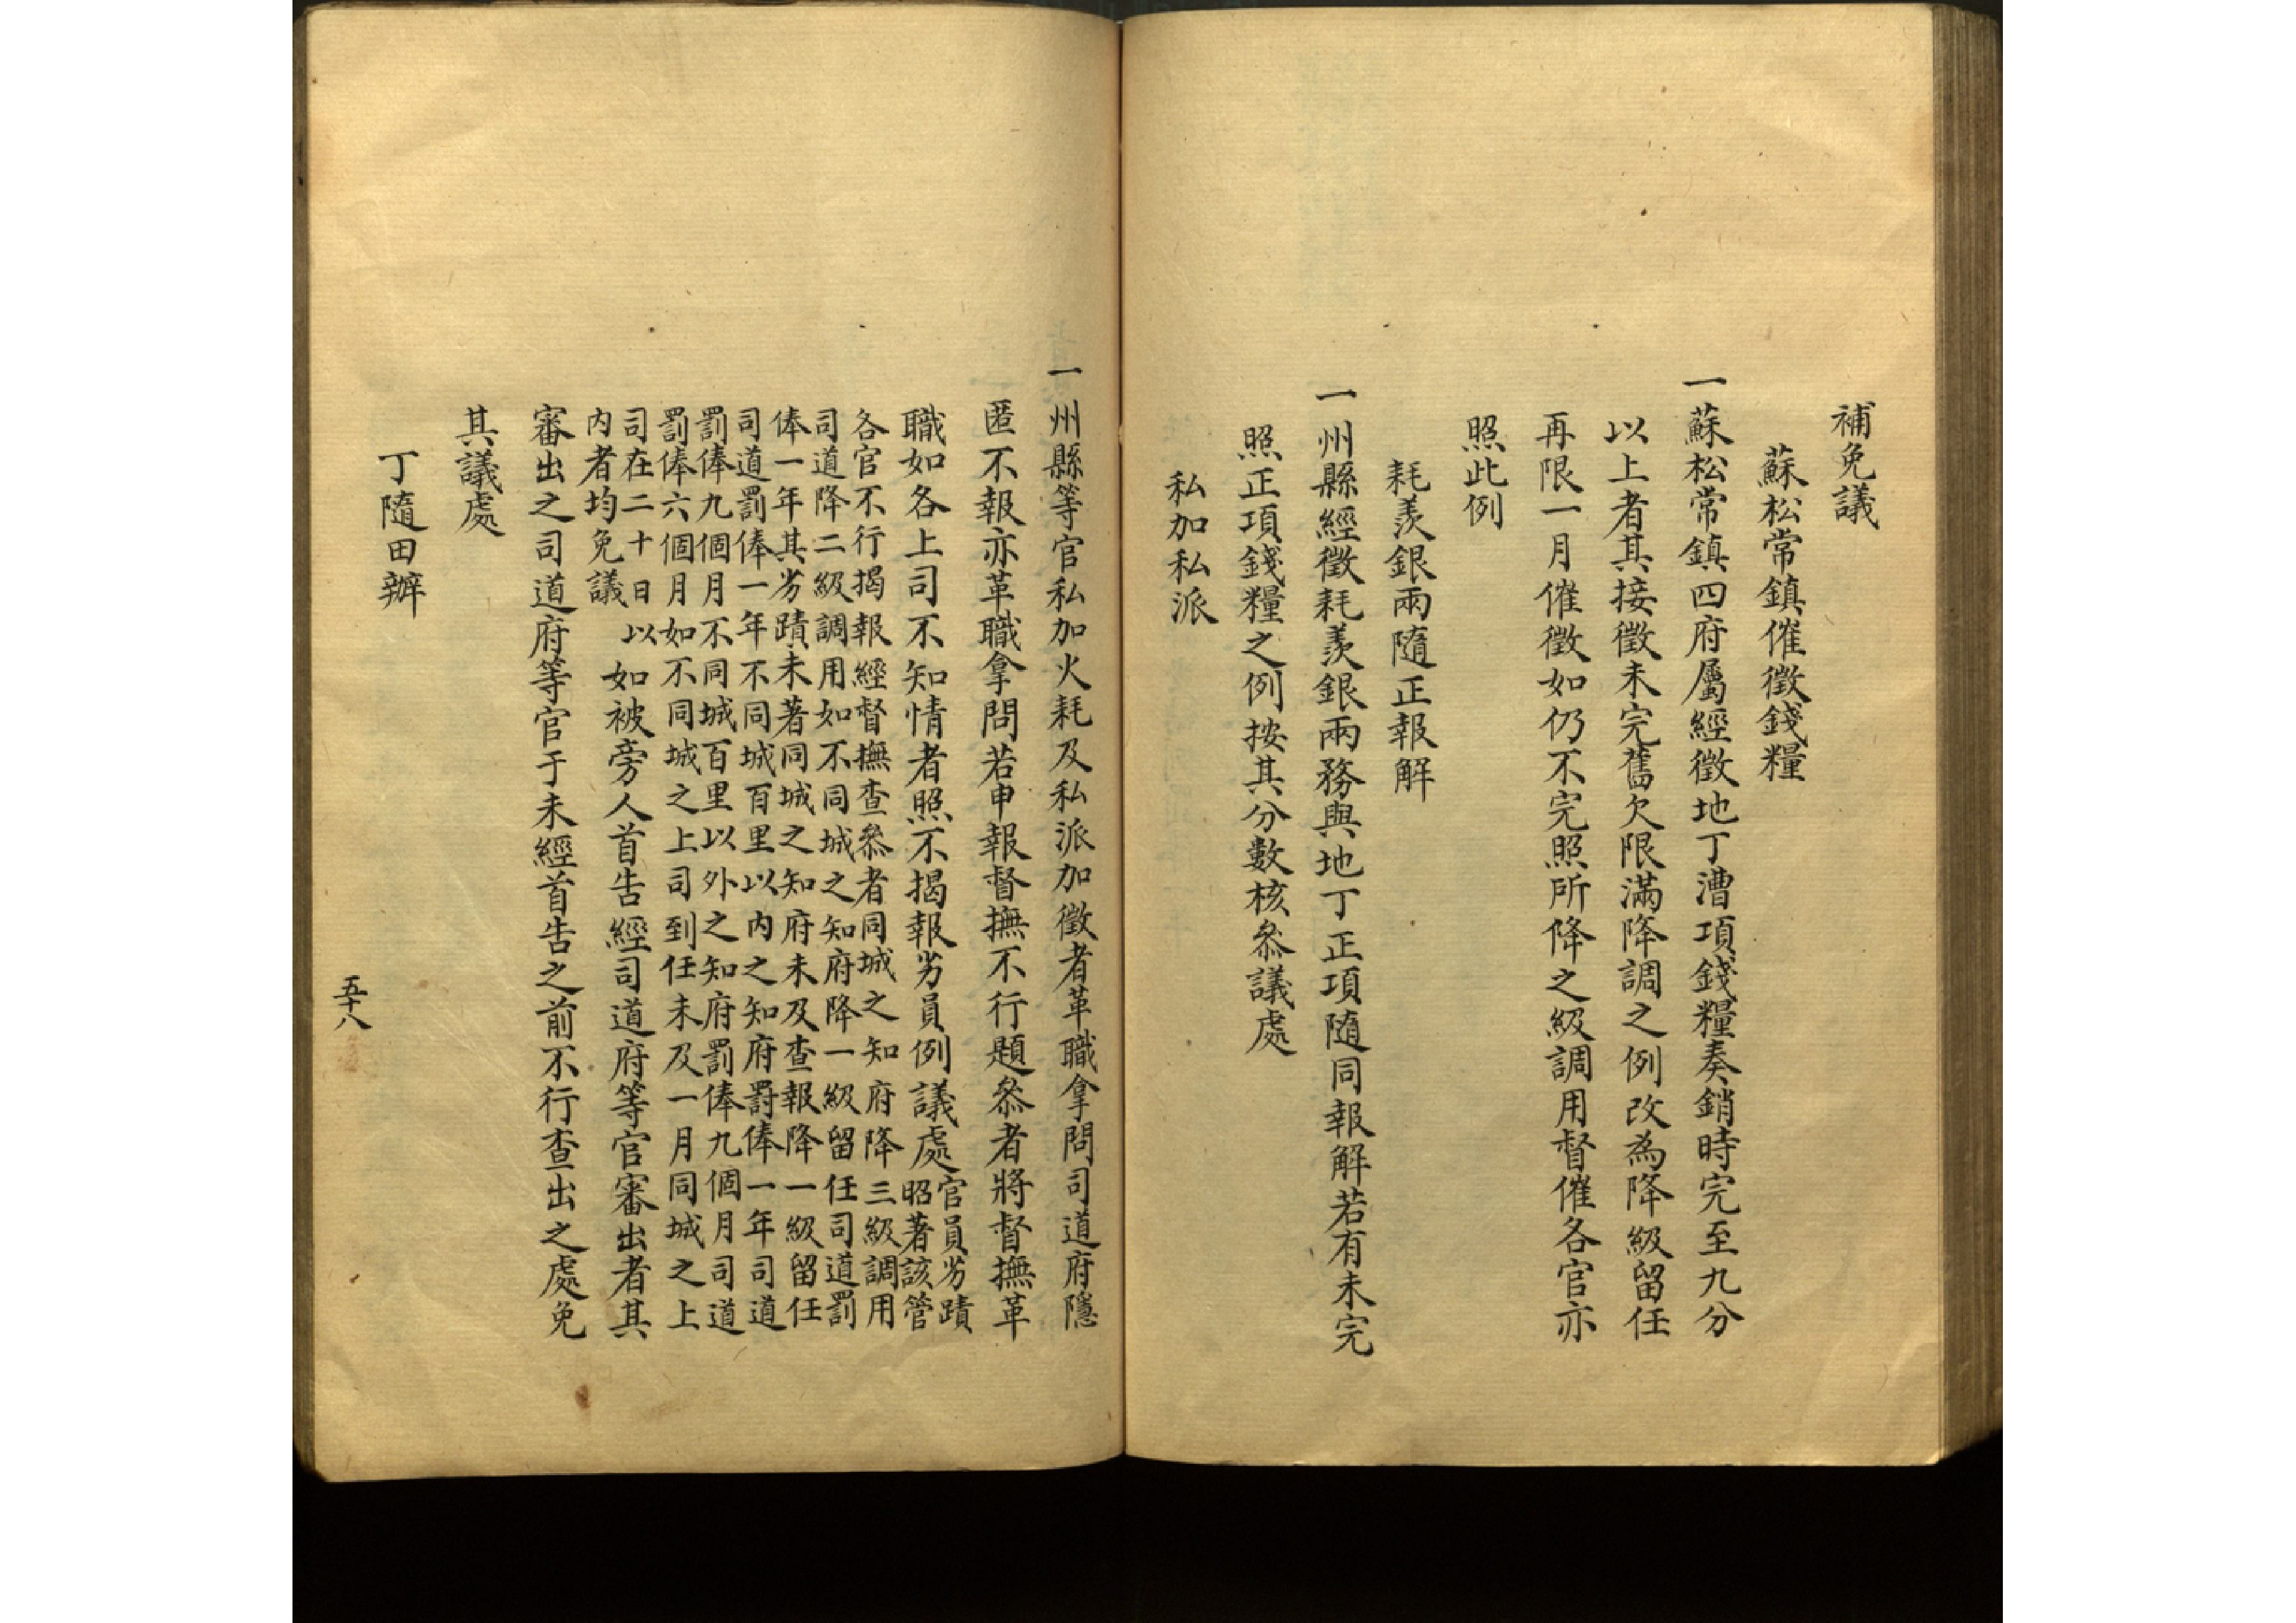 補免議
蘇松常鎮催徵錢糧
一蘇松常鎮四府屬經徵地丁漕項錢糧奏銷時完至九分
以上者其接徵未完舊欠限滿降調之例改為降級留任
再限一月催徵如仍不完照所降之級調用督催各官亦
照此例
耗羨銀兩隨正報解
一州縣經徵耗羨銀兩務與地丁正項隨同報解若有未完
照正項錢糧之例按其分數核叅議處
私加私派
一州縣等官私加火耗及私派加徵者革職拿問司道府隱
匿不報亦革職拿問若申報督撫不行題叅者將督撫革
職如各上司不知情者照不揭報劣員例議處
官員劣蹟
昭著該管
各官不行揭報經督撫查叅者同城之知府降三級調用
司道降二級調用如不同城之知府降一級留任司道罰
俸一年其劣蹟未著同城之知府未及查報降一級留任
司道罰俸一年不同城百里以內之知府罰俸一年司道
罰俸九個月不同城百里以外之知府罰俸九個月司道
罰俸六個月如不同城之上司到任未及一月同城之上
司在二十日以
内者均免議
如被旁人首告經司道府等官審出者其
審出之司道府等官于未經首告之前不行查出之處免
其議處
丁隨田辦
五十八